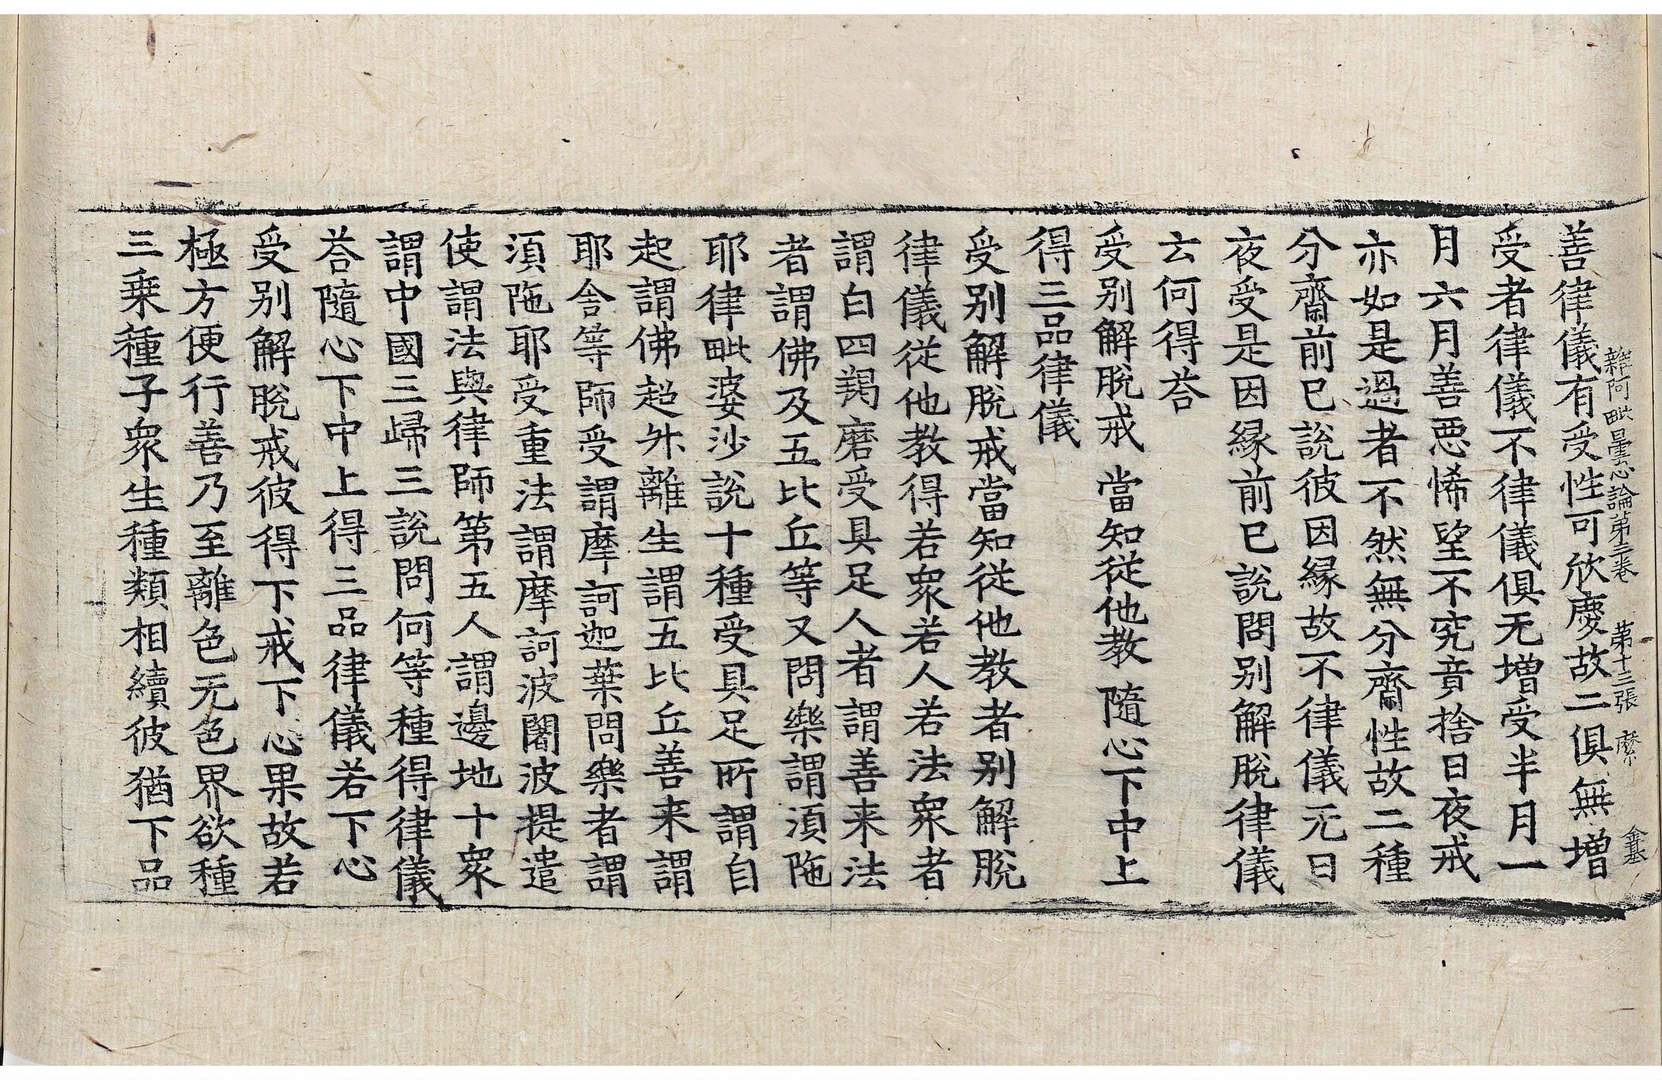 善律儀有受性可欣慶故二俱無増
雜阿毗曇心論第三卷　第十三張　縻
受者律儀不律儀俱无增受半月一
月六月善惡悕望不究竟捨日夜戒
亦如是過者不然無分齋性故二種
分齋前已說彼因緣故不律儀无日
夜受是因緣前已說問別解脫律儀
云何得荅
受別解脫戒　當知從他教　隨心下中上
得三品律儀
受別解脫戒當知從他教者別解脫
律儀從他教得若衆若人若法衆者
謂白四羯磨受具足人者謂善来法
者謂佛及五比丘等又問樂謂須陁
耶律毗婆沙說十種受具足所謂自
起謂佛超昇離生謂五比丘善来謂
耶舍等師受謂摩訶迦葉問樂者謂
須陁耶受重法謂摩訶波闍波提遣
使謂法與律師第五人謂邊地十衆
謂中國三歸三說問何等種得律儀
荅隨心下中上得三品律儀若下心
受別解脫戒彼得下戒下心果故若
極方便行善乃至離色无色界欲種
三乗種子衆生種類相續彼猶下品